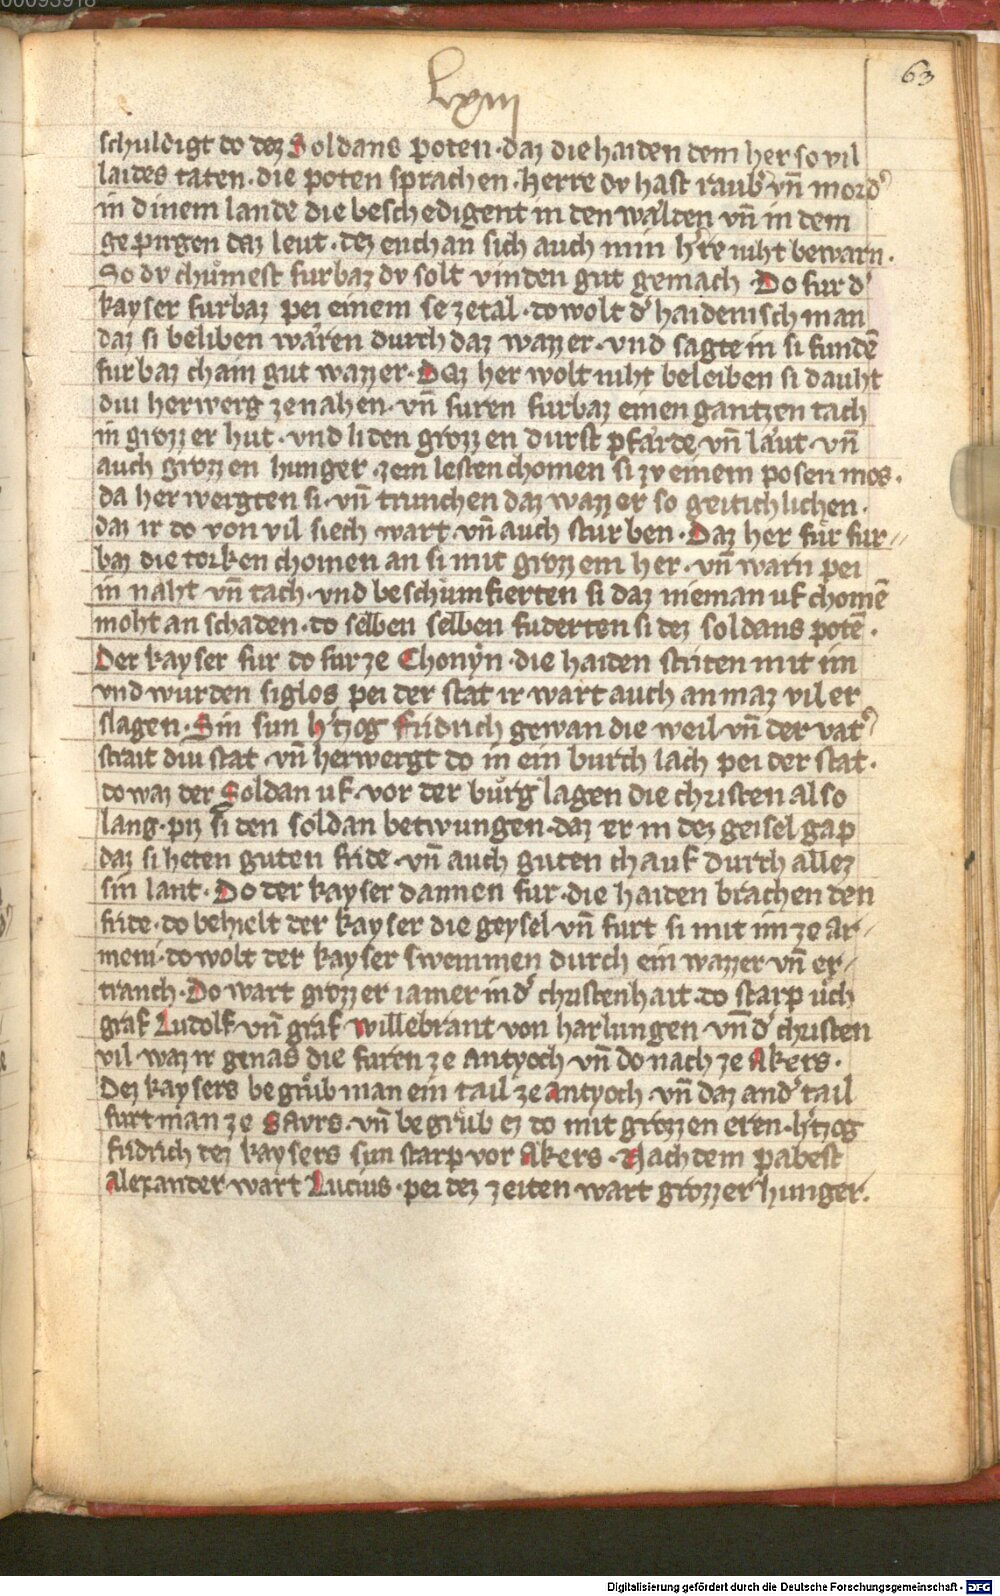 00093918
lxiii
63
schuldigt do dez Soldans poten · daz die haiden dem her so vil
laides taten · die poten sprachen · herre dv hast raub vn̄ mord
in dinem lande die beschedigent in den wälden vn̄ in dem
gepirgen daz leut · dez euch an sich auch min hr̄e niht bewarn ·
So dv chůmest furbaz dv solt vinden gut gemach · Do fur d'
kayser furbaz pei einem se zetal · do wolt d' haidenisch man
daz si beliben wären durch daz wazzer · vnd sagte in si fundē
furbaz chain gut wazzer · Daz her wolt niht beleiben si dauht
div herwerg ze nahen · vn̄ furen furbaz einen gantzen tach
in grozzer hut · vnd liden grozzen durst pfärde vn̄ läut · vn̄
auch grozzen hunger · zem lesten chomen si zv einem posen mos ·
da herwergten si · vn̄ trunchen daz wazzer so geitichlichen ·
daz ir do von vil siech wart · vn̄ auch sturben · Daz her fůr fur
baz die torken chomen an si mit grozzem her · vn̄ warn pei
in naht vn̄ tach · vnd beschůmfierten si daz nieman uf chomē
moht an schaden · do selben selben fuderten si dez soldans potē ·
Der kayser fur do fur ze Chonyn · die haiden striten mit im
vnd wurden siglos pei der stat ir wart auch an maz vil er
slagen · Sin sun h'tzog fridrich gewan die weil vn̄ der vat'
strait div stat · vn̄ herwergt do in ein burch lach pei der stat ·
do waz der Soldan uf · vor der bůrg lagen die christen also
lang · piz si den soldan betwungen · daz er in dez geisel gap
daz si heten guten fride · vn̄ auch guten chauf durch allez
sin lant · Do der kayser dannen fur · die haiden brachen den
fride · do behielt der kayser die geysel vn̄ furt si mit im ze ar
meni · do wolt der kayser swemmen durch ein wazzer vn̄ er
tranch · Do wart grozzer iamer in d' christenhait · do starp ůch
graf Ludolf vn̄ graf willebrant von harlungen vn̄ d' christen
vil · waz ir genas die furn ze antyoch vn̄ do nach ze Akers ·
Dez kaysers begrůb man ein tail ze antyoch · vn̄ daz and' tail
furt man ze Savrs · vn̄ begrůb ez do mit grozzen eren · h'tzog
fridrich dez kaysers sun starp vor Akers · Nach dem pabest
Alexander wart Lucius · pei dez zeiten wart grozzer hunger ·
Digitalisierung gefördert durch die Deutsche Forschungsgemeinschaft - DFG